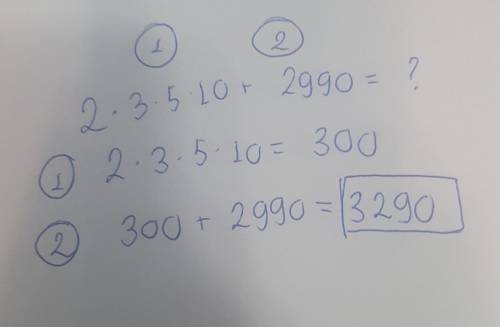 1 2
2 · 3 · 5 · 10 + 2990 = ?
1 2 · 3 · 5 · 10 = 300
2 300 + 2990 = 3290